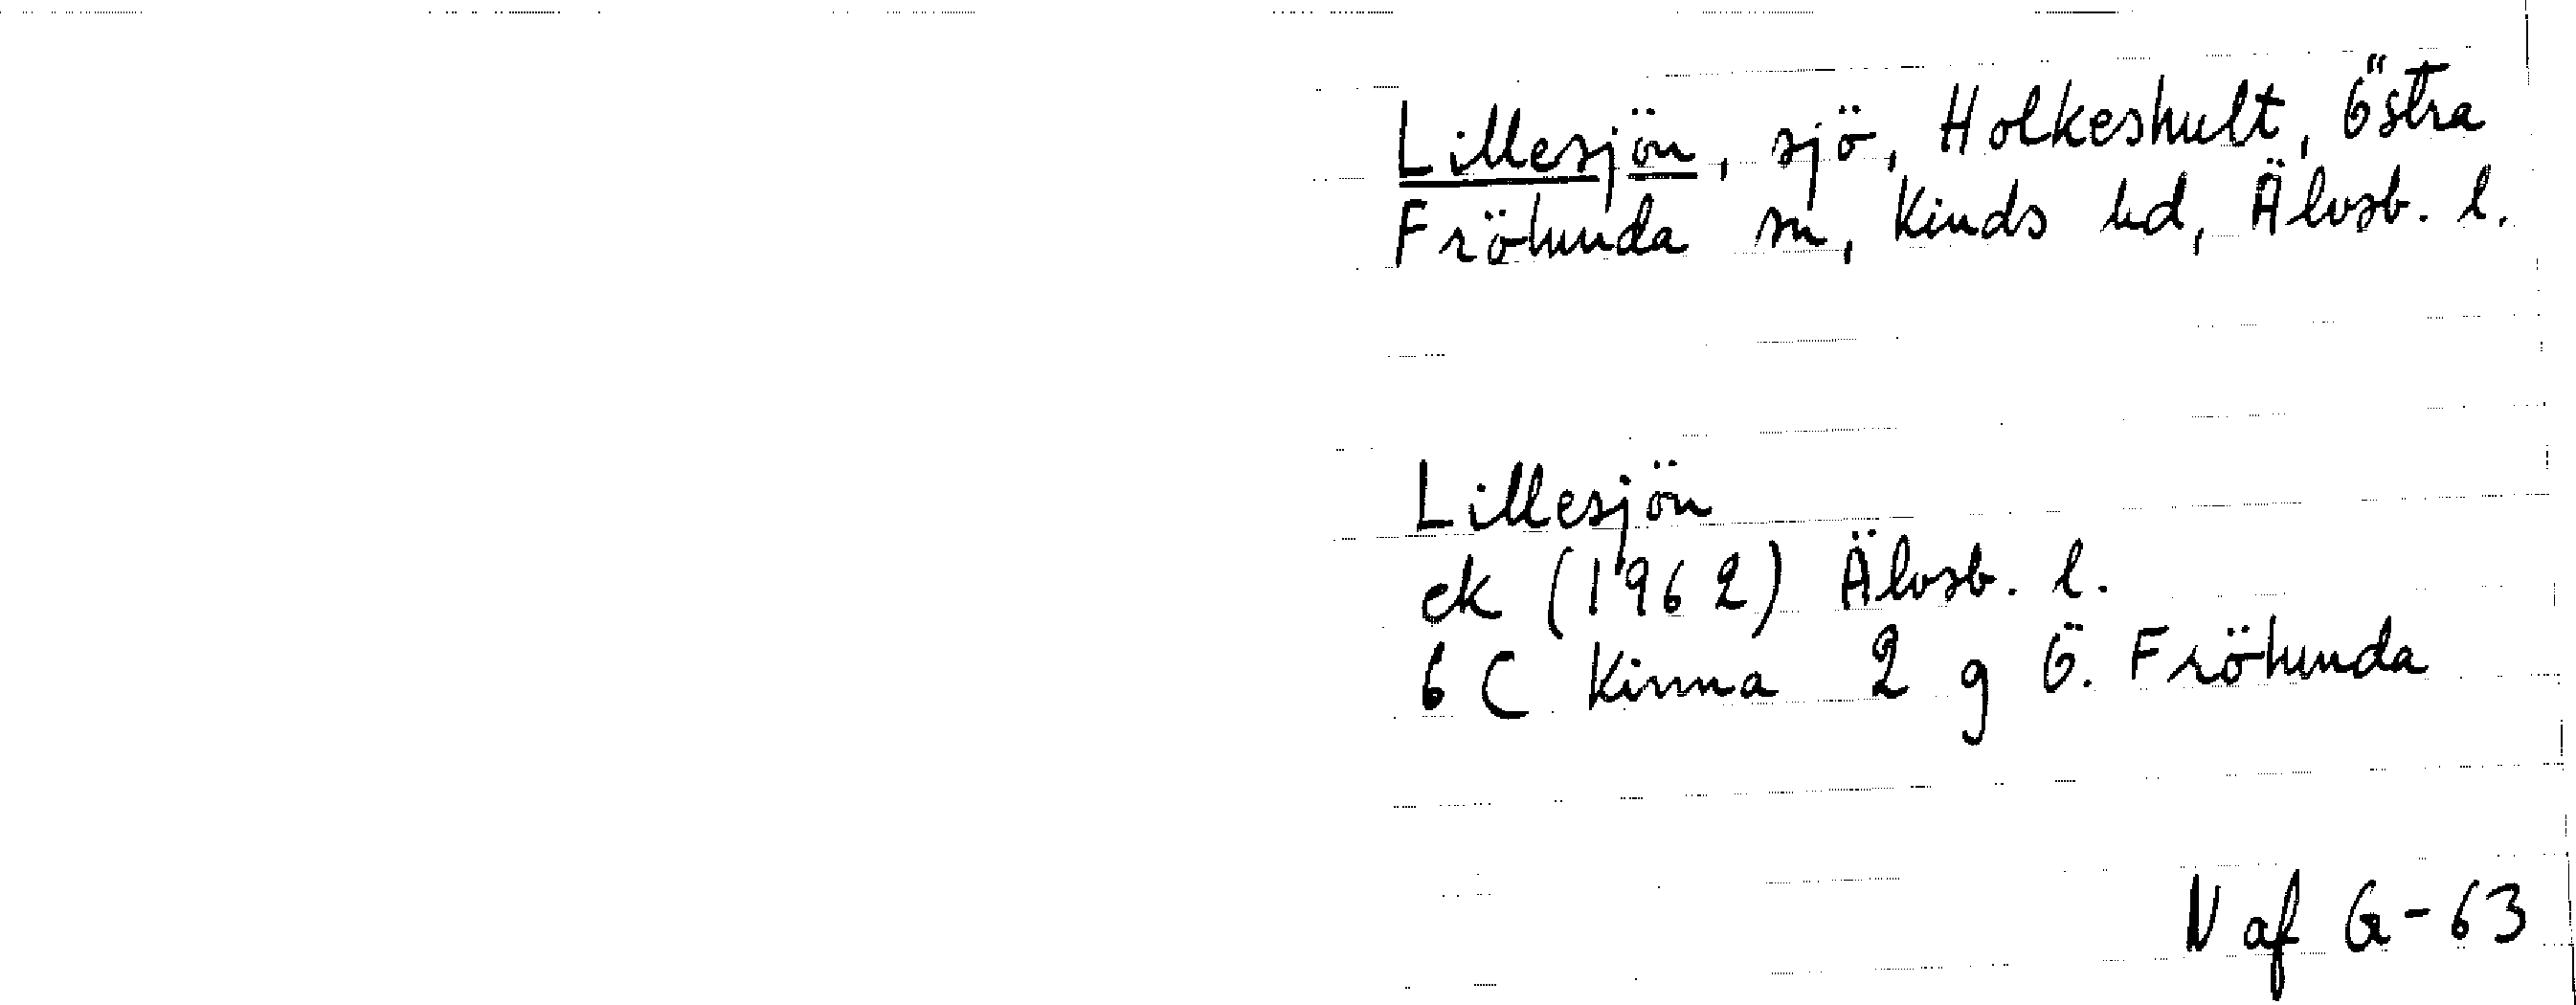 Lillesjön, sjö, Holkeshult, Östra
Frölunda sn, Kinds hd, Älvsb. l.
Lillesjön
ek (1962) Älvsb. l.
6 C Kinna 2 g Ö. Frölunda
N af G-63